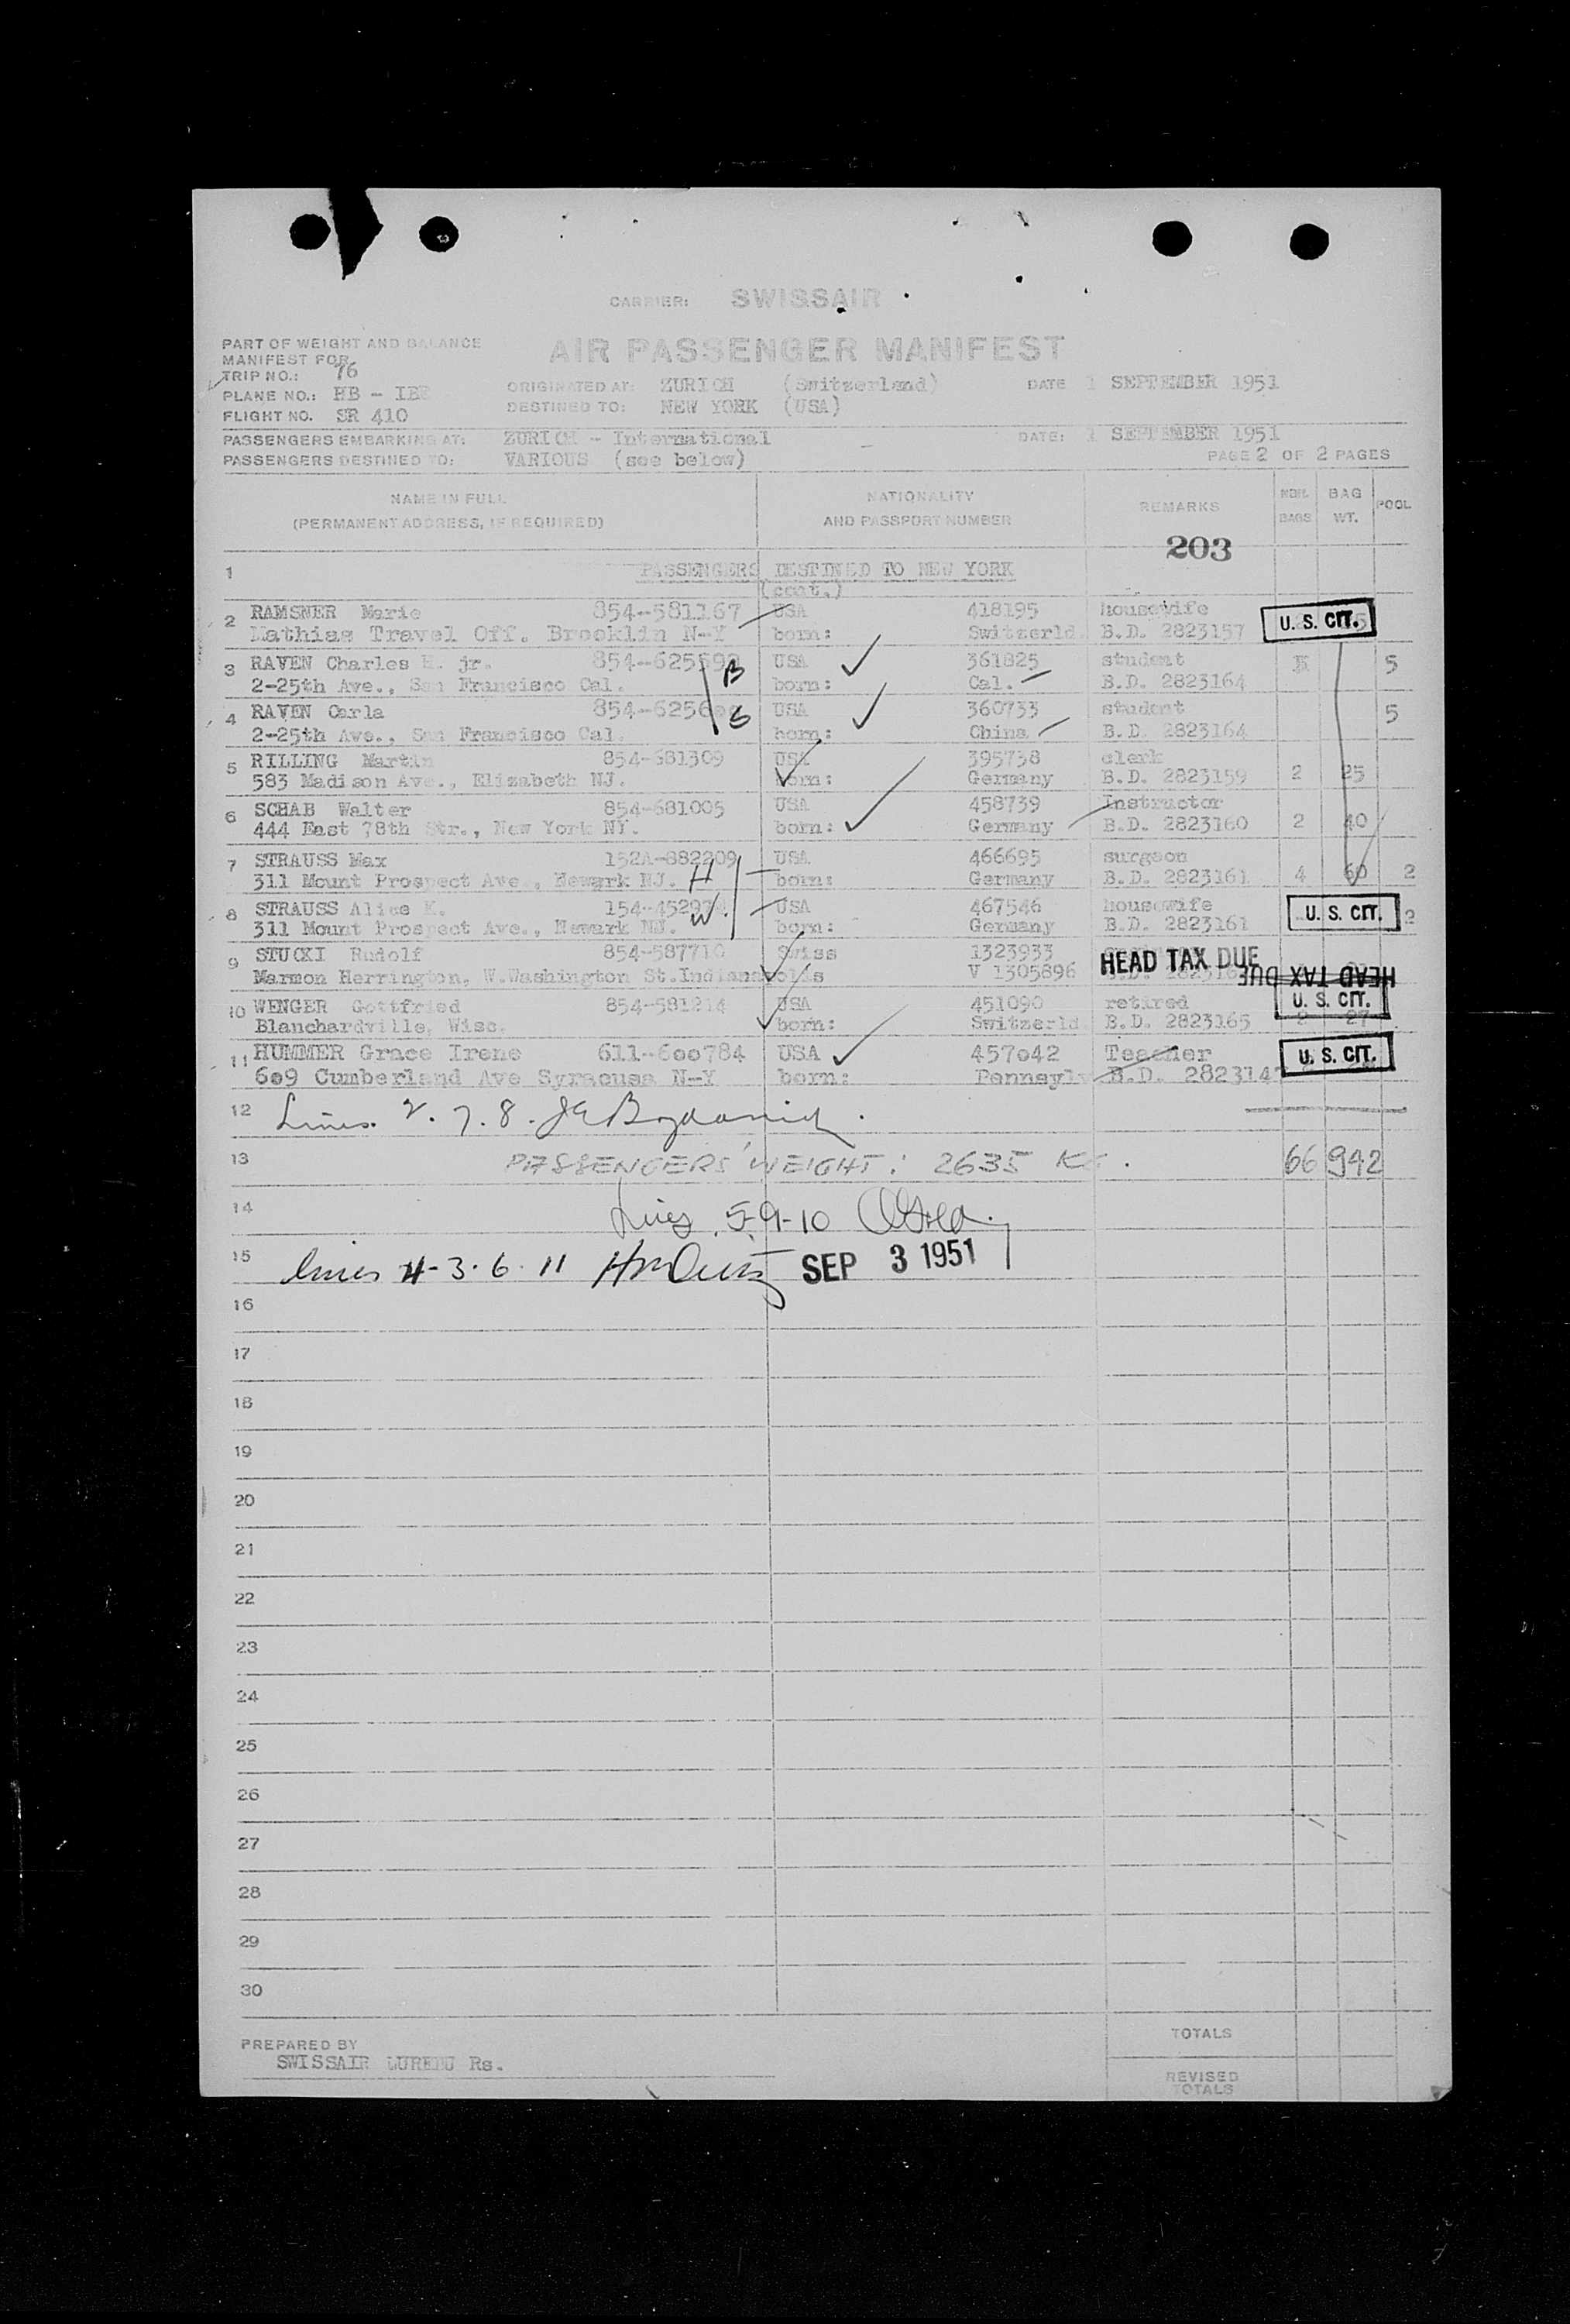 CARRIER: SWISSAIR
PART OF WEIGHT AND BALANCE
MANIFEST FOR
AIR PASSENGER MANIFEST
TRIP NO.: 76
PLANE NO.: HB - IE
ORIGINATED AT: ZURICH (Switzerland) DATE 1 SEPTEMBER 1951
FLIGHT NO. SR 410
DESTINED TO: NEW YORK (USA)
PASSENGERS EMBARKING AT: ZURICH - International DATE: 1 SEPTEMBER 1951
PASSENGERS DESTINED TO: VARIOUS (see below) PAGE 2 OF 2 PAGES
NAME IN FULL NATIONALITY REMARKS BAG POOL
(PERMANENT ADDRESS, IF REQUIRED) AND PASSPORT NUMBER BAGS WT.
203
1 PASSENGERS DESTINED TO NEW YORK
(cont.)
2 RAMSNER Marie 854-581167 USA 418195 housewife
Mathias Travel Off. Brooklin N-Y born: Switzerld. B.D. 2823157 U. S. CIT.
3 RAVEN Charles jr. USA 361825 student 5
2-25th Ave., San Francisco Cal. B born: Cal. B.D. 2823164
4 RAVEN Carla USA 360733 student 5
2-25th Ave., San Francisco Cal. S born: China B.D. 2823164
5 RILLING Martin 854-581309 USA 395738 clerk
583 Madison Ave., Elizabeth NJ. born: Germany B.D. 2823159 2 25
6 SCHAB Walter 854-681005 USA 458739 Instructor
444 East 78th Str., New York NY. born: Germany B.D. 2823160 2 40
7 STRAUSS Max 152A-882209 USA 466695 surgeon
311 Mount Prospect Ave., Newark NJ. H born: Germany B.D. 2823161 4 60 2
8 STRAUSS Alice K. USA 467546 housewife U. S. CIT. 2
311 Mount Prospect Ave., Newark NJ. W. born: Germany B.D. 2823161
9 STUCKI Rudolf 854-587710 Swiss 1323933
Marmon Herrington, W.Washington St.Indianapolis V 1305896 HEAD TAX DUE
HEAD TAX DUE
10 WENGER Gottfried 854-581214 USA 451090 retired U. S. CIT.
Blanchardville, Wisc. born: Switzerld B.D. 2823165 2 27
11 HUMMER Grace Irene 611-600784 USA 457042 Teacher U. S. CIT.
609 Cumberland Ave Syracusa N-Y born: Pennsylv B.D.
12 Lines. 2. 7. 8.
13 PASSENGERS' WEIGHT: 2635 KG. 66 942
14 Lines 5-9-10
15 lines 4-3.6.11 SEP 3 1951
16
17
18
19
20
21
22
23
24
25
26
27
28
29
30
PREPARED BY TOTALS
SWISSAIR Rs.
REVISED
TOTALS